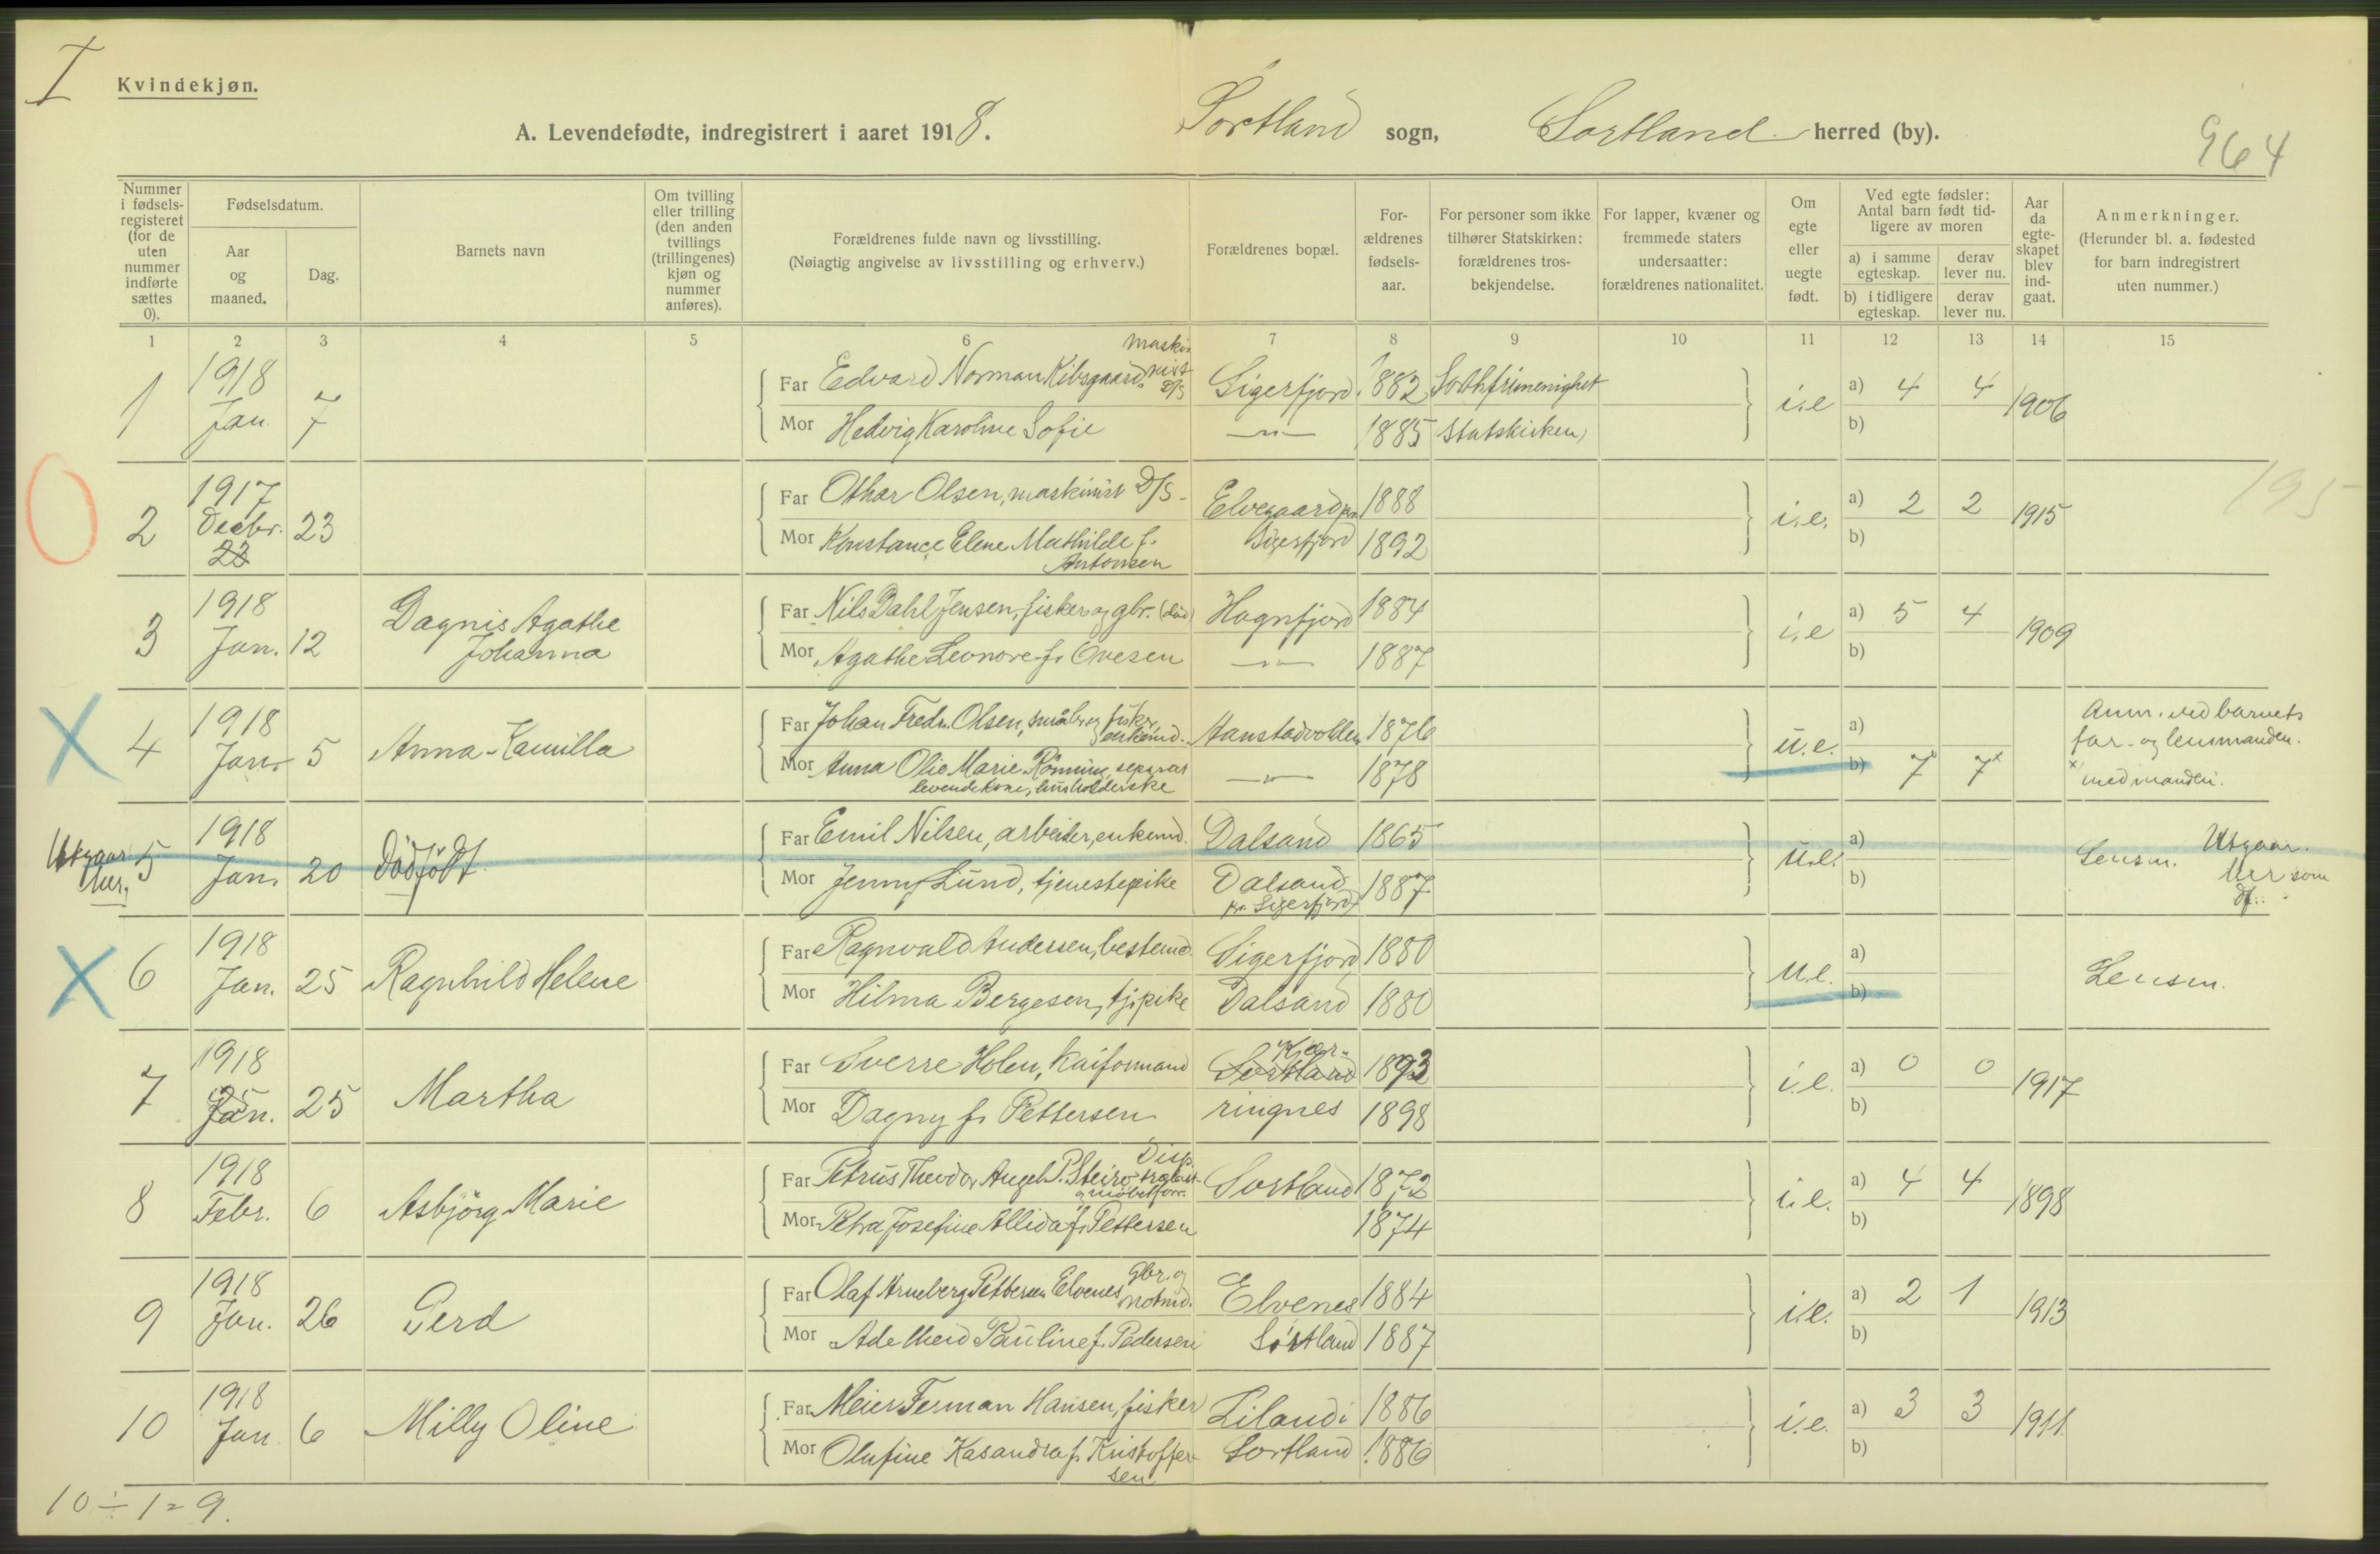 I
Kvindekjøn.
A. Levendefødte, indregistrert i aaret 1918. Sortland sogn, Sortland herred (by).
964
Nummer i fødsels-registeret (for de uten nummer indførte sættes 0).
Fødselsdatum.
Aar og maaned.
Dag.
Barnets navn
Om tvilling eller trilling (den anden tvillings (trillingenes) kjøn og nummer anføres).
Forældrenes fulde navn og livsstilling.
(Nøiagtig angivelse av livsstilling og erhverv.)
Forældrenes bopæl.
For-ældrenes fødsels-aar.
For personer som ikke tilhører Statskirken: forældrenes tros-bekjendelse.
For lapper, kvæner og fremmede staters undersaatter: forældrenes nationalitet.
Om egte eller uegte født.
Ved egte fødsler: Antal barn født tid-ligere av moren
a) i samme egteskap.
derav lever nu.
b) i tidligere egteskap.
derav lever nu.
Aar da egte-skapet blev ind-gaat.
Anmerkninger.
(Herunder bl. a. fødested for barn indregistrert uten nummer.)
1 2 3 4 5 6 7 8 9 10 11 12 13 14 15
1 1918 Jan. 7
Far Edvard Norman Kibsgaard, maskinist D/S Sigerfjord. 1882 i.e a) 4 4 1906
Mor Hedvig Karoline Sofie —"— 1885 Statskirken b)
2 1917 Decbr. 23 23
Far Othar Olsen, maskinist D/S - Elvegaard pr. 1888 i.e. a) 2 2 1915
Mor Konstance Elene Mathilde f. Antonsen Sigerfjord 1892 b)
195
3 1918 Jan. 12 Dagnis Agathe Johanna
Far Nils Dahl Jensen, fisker og gbr. (død) Hognfjord 1884 i.e a) 5 4 1909
Mor Agathe Leonore f. Ovesen —"— 1887 b)
4 1918 Jan. 5 Anna Kamilla
Far Johan Fredr. Olsen, småbr. og fisker, enkemd. Hanstadvolden 1876 u.e. a)
Mor Anna Olie Marie Rönning, separat levende kone, husholderske —"— 1878 b) 7x 7x
Anm. ved barnets far- og lensmanden.
x med manden.
Utgaar her. 5 1918 Jan. 20 Dödfödt
Far Emil Nilsen, arbeider, enkemd. Dalsand 1865 u.e. a)
Mor Jenny Lund, tjenestepike Dalsand pr. Sigerfjord 1887 b)
Lensm. Utgaar her som df.
6 1918 Jan. 25 Ragnhild Helene
Far Ragnvald Andersen, bestemd. Sigerfjord 1880 u.e. a)
Mor Hilma Bergesen, tj.pike Dalsand 1880 b)
Lensm.
7 1918 Jan. 25 Martha
Far Sverre Holen, kaiformand Sortland Kjær- 1893 i.e. a) 0 0 1917
Mor Dagny f. Pettersen ringnes 1898 b)
8 1918 Febr. 6 Asbjörg Marie
Far Petrus Theodor Angel P. Steiro Sortland 1872 i.e. a) 4 4 1898
Mor Petra Josefine Allida f. Pettersen 1874 b)
9 1918 Jan. 26 Gerd
Far Olaf Arneberg Pettersen Elvenes gbr. og notmd. Elvenes 1884 i.e. a) 2 1 1913
Mor Adelheid Pauline f. Pedersen Sortland 1887 b)
10 1918 Jan. 6 Milly Oline
Far Meier Ferman Hansen, fisker Liland i 1886 i.e. a) 3 3 1911
Mor Olufine Kasandra f. Kristoffersen Sortland 1886 b)
10 ÷ 1 = 9.